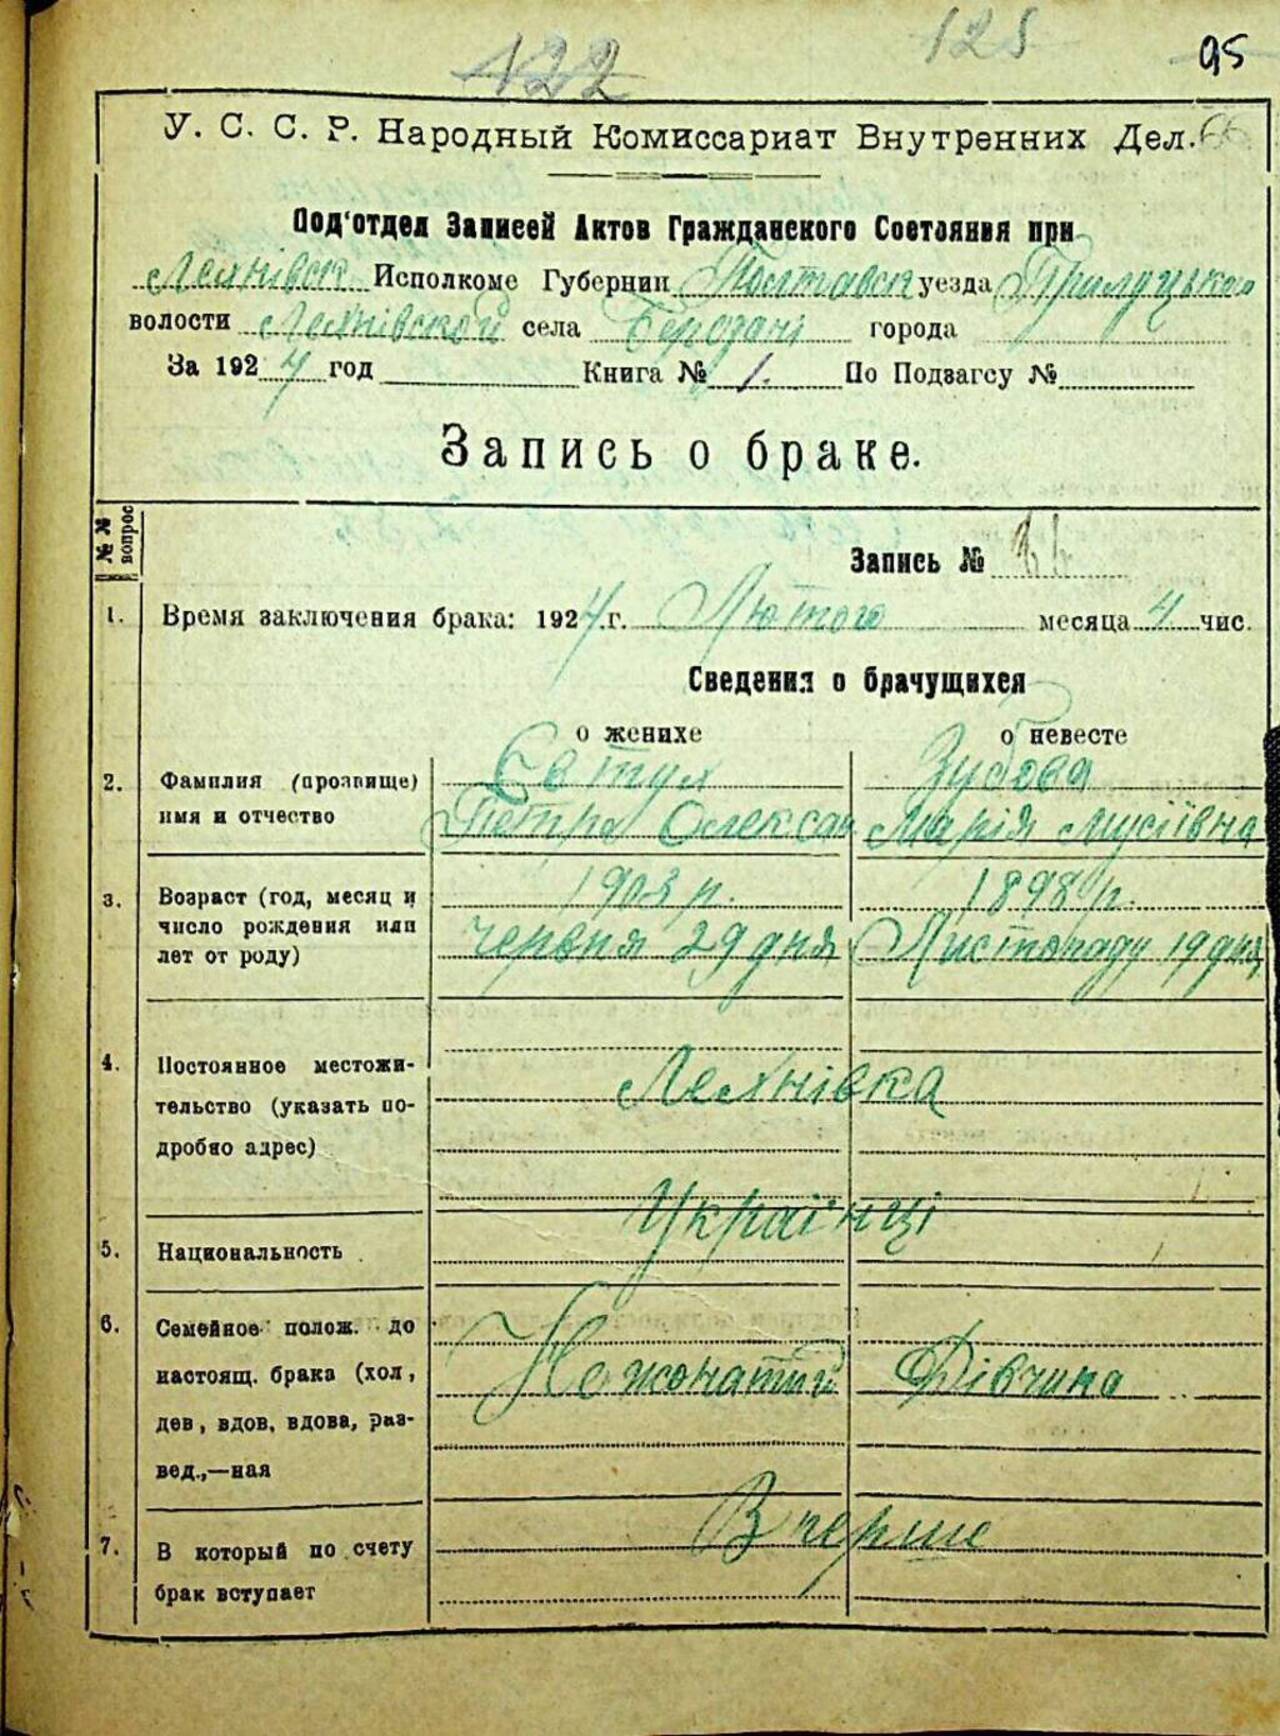 122 125 95
У. С. С. Р. Народный Комиссариат Внутренних Дел. 66
Под'отдел Записей Актов Гражданского Состояния при
Лехнівск Исполкоме Губернии Полтавск уезда Прилуцького
волости Лехнівской села города
За 1924 год Книга № 1. По Подзагсу №
Запись о браке.
№№ вопрос
Запись №
1. Время заключения брака: 1924 г. Лютого месяца 4 чис.
Сведения о брачущихся
о женихе о невесте
2. Фамилия (прозвище) Євтух Зубова
имя и отчество Петро Олексан Марія Мусіївна
3. Возраст (год, месяц и 1903 р. 1898 р.
число рождения или червня 29 дня Листопаду 19 дня
лет от роду)
4. Постоянное местожи-
тельство (указать по- Лехнівка
дробно адрес)
Українці
5. Национальность
6. Семейное полож. до
настоящ. брака (хол, Не жонатий Дівчина
дев, вдов, вдова, раз-
вед.,—ная
7. В который по счету Вперше
брак вступает